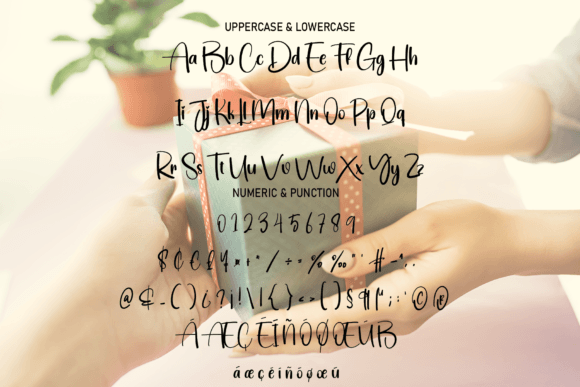 UPPERCASE & LOWERCASE
Aa Bb Cc Dd Ee Ff Gg Hh
Ii Jj Kk Ll Mm Nn Oo Pp Qq
Rr Ss Tt Uu Vv Ww Xx Yy Zz
NUMERIC & PUNCTION
0 1 2 3 4 5 6 7 8 9
$ ¢ £ ¥ * + " / ÷ = % ‰ " ' # - " : .
@ & - ( ) ¿ ? ¡ ! \ | { } < > [ ] § ¶ ; : ' © ®
Á Æ Ç É Í Ñ Ó Ø Œ Ú
á æ ç é í ñ ó ø œ ú